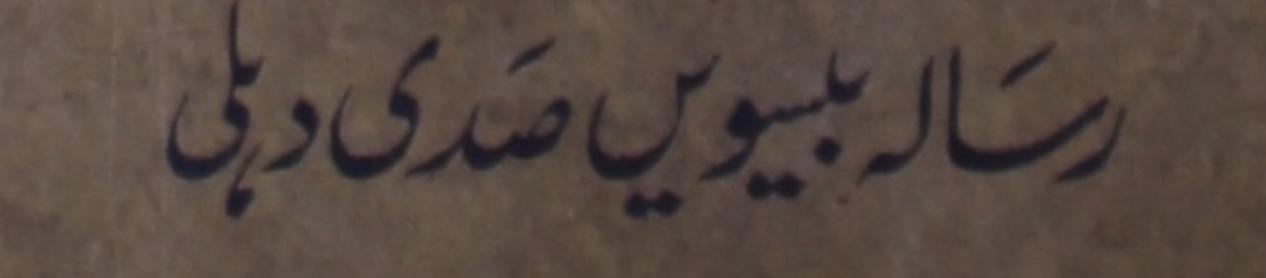 رسالہ بیسویں صدی دہلی